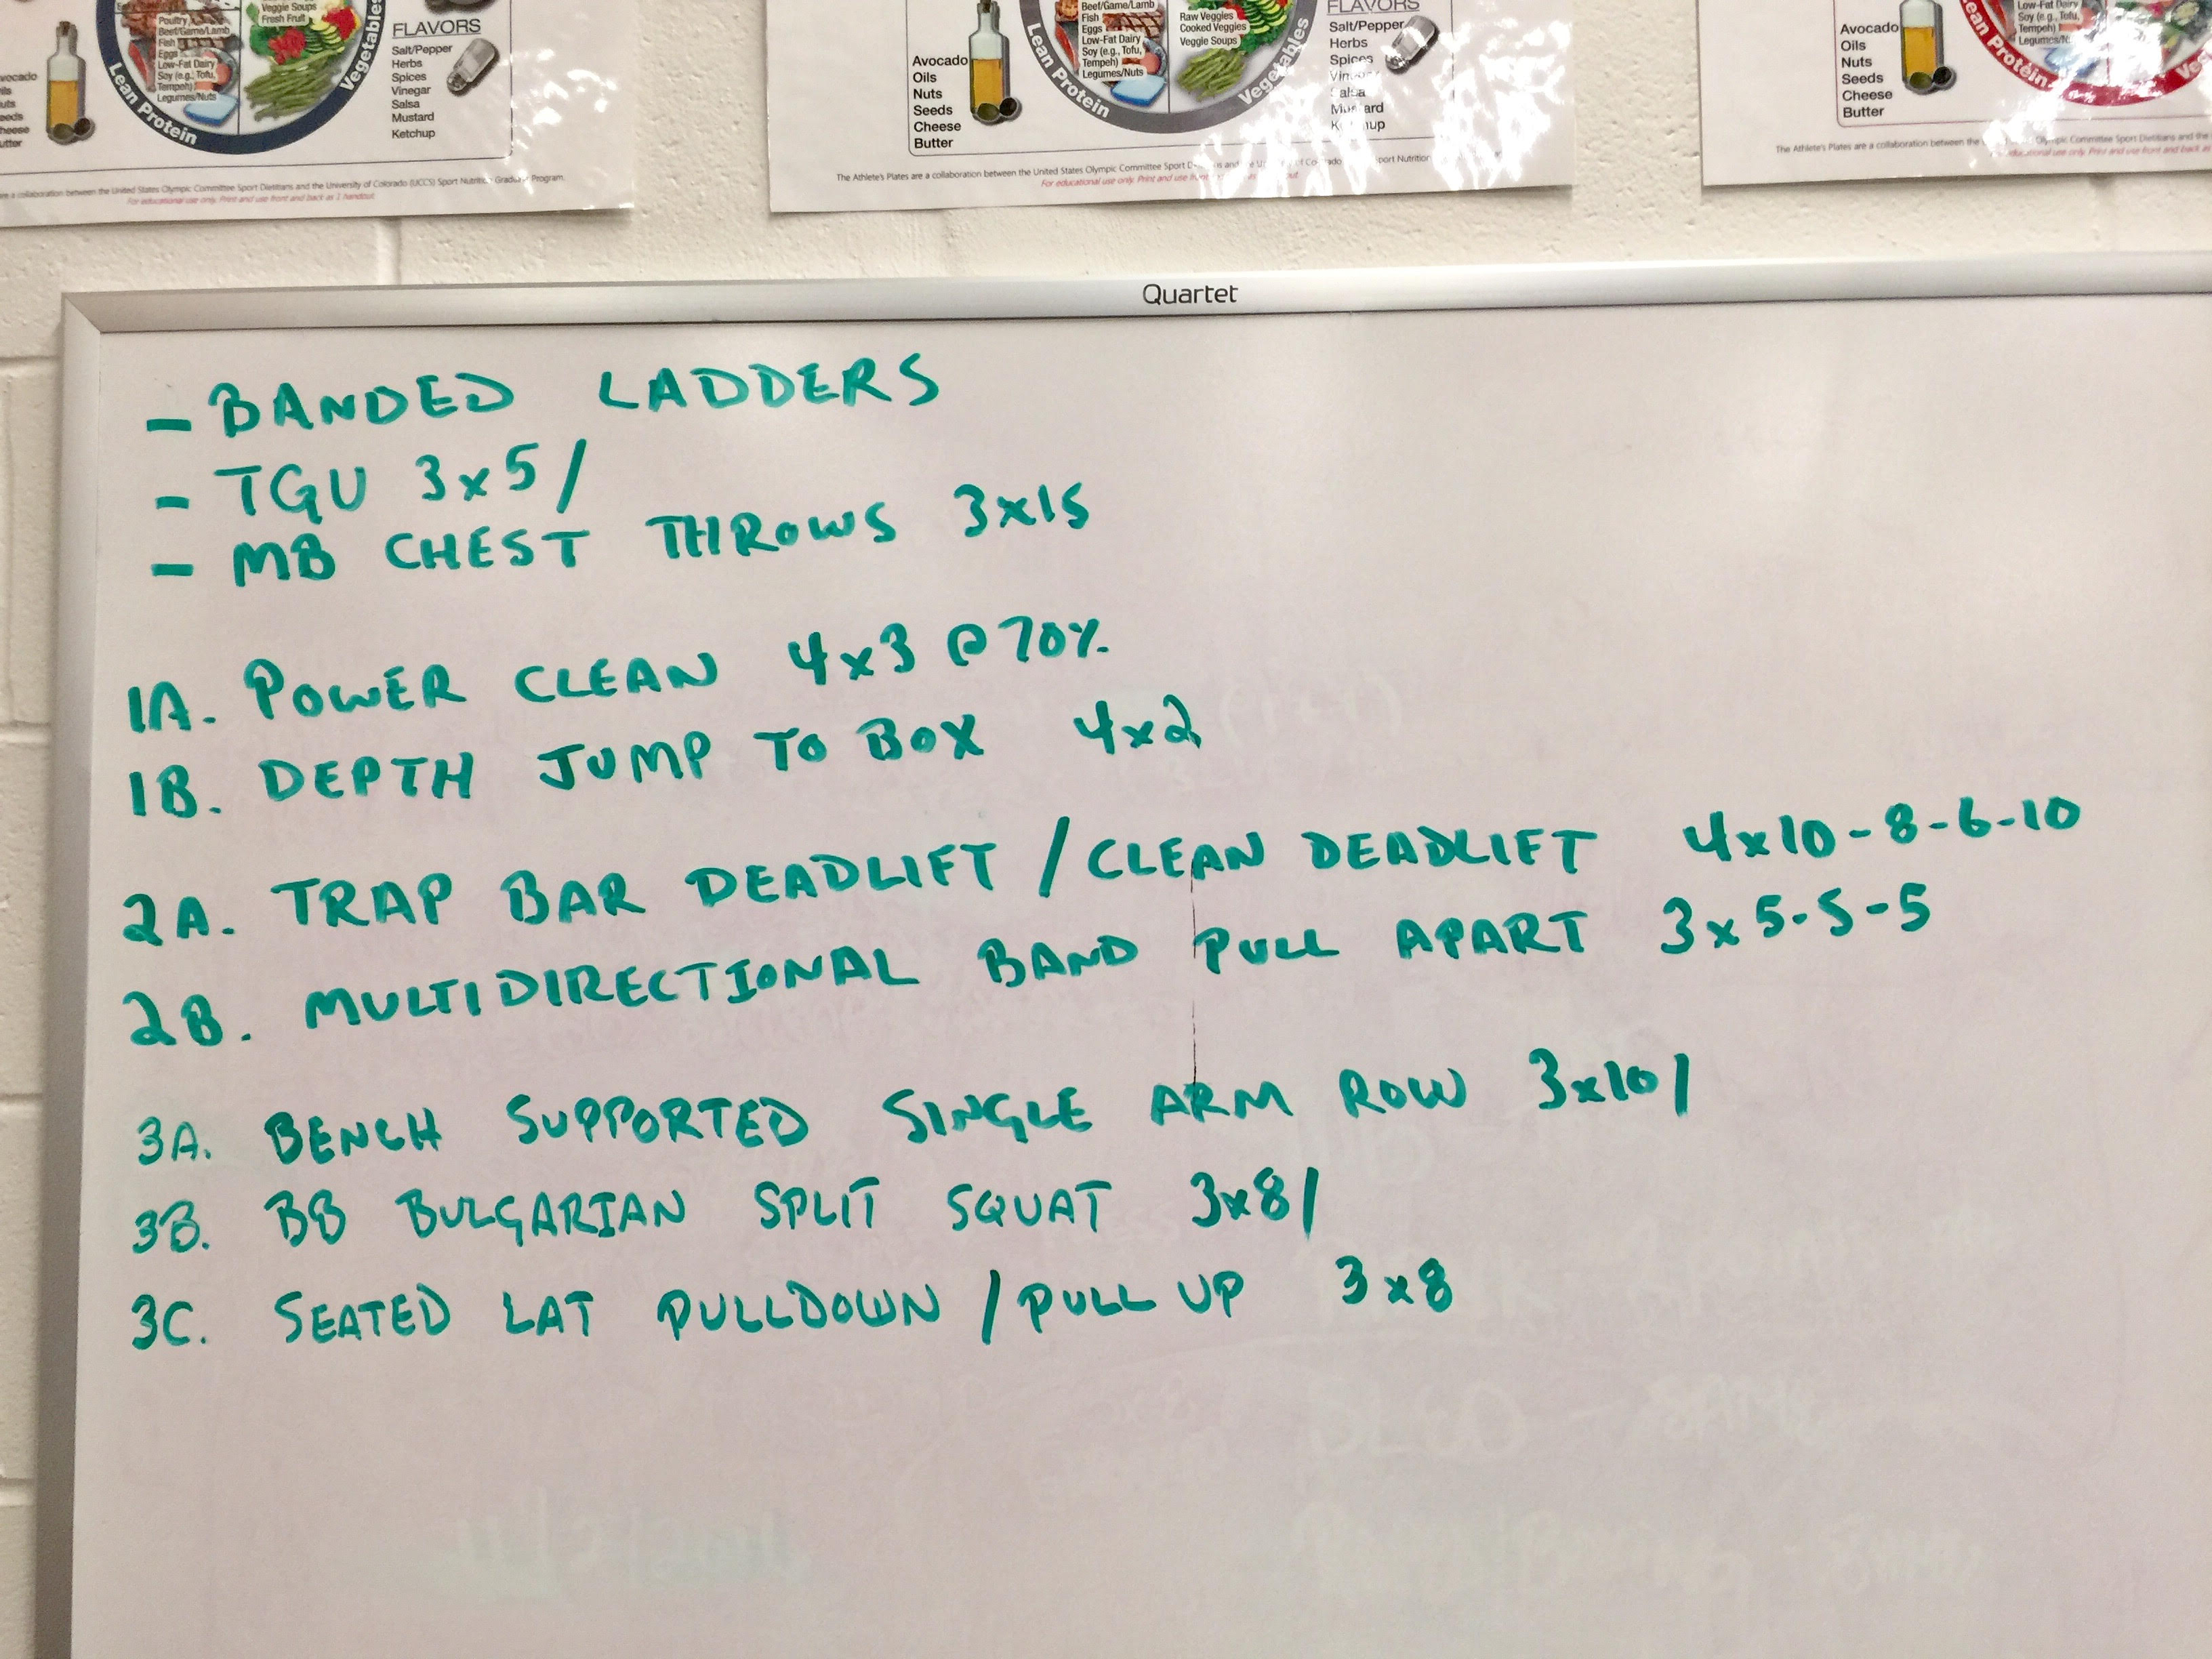 Poultry
Beef/Game/Lamb
Fish
Eggs
Low-Fat Dairy
Soy (e.g., Tofu,
Tempeh)
Legumes/Nuts
Lean Protein
Veggie Soups
Fresh Fruit
Vegetables
FLAVORS
Salt/Pepper
Herbs
Spices
Vinegar
Salsa
Mustard
Ketchup
collaboration between the United States Olympic Committee Sport Dietitians and the University of Colorado (UCCS) Sport Nutrition Graduate Program.
For educational use only. Print and use front and back as 1 handout
Avocado
Oils
Nuts
Seeds
Cheese
Butter
Beef/Game/Lamb
Fish
Eggs
Low-Fat Dairy
Soy (e.g., Tofu,
Tempeh)
Legumes/Nuts
Lean Protein
Raw Veggies
Cooked Veggies
Veggie Soups
Vegetables
FLAVORS
Salt/Pepper
Herbs
Spices
The Athlete's Plates are a collaboration between the United States Olympic Committee Sport
For educational use only. Print and use
Avocado
Oils
Nuts
Seeds
Cheese
Butter
Low-Fat Dairy
Soy (e.g., Tofu,
Tempeh)
Lean Protein
The Athlete's Plates are a collaboration between the United States Olympic Committee Sport Dietitians and the
Quartet
- BANDED LADDERS
- TGU 3x5/
- MB CHEST THROWS 3x15
1A. POWER CLEAN 4x3 @ 70%
1B. DEPTH JUMP TO BOX 4x2
2A. TRAP BAR DEADLIFT / CLEAN DEADLIFT 4x10-8-6-10
2B. MULTIDIRECTIONAL BAND PULL APART 3x5-5-5
3A. BENCH SUPPORTED SINGLE ARM ROW 3x10/
3B. BB BULGARIAN SPLIT SQUAT 3x8/
3C. SEATED LAT PULLDOWN / PULL UP 3x8